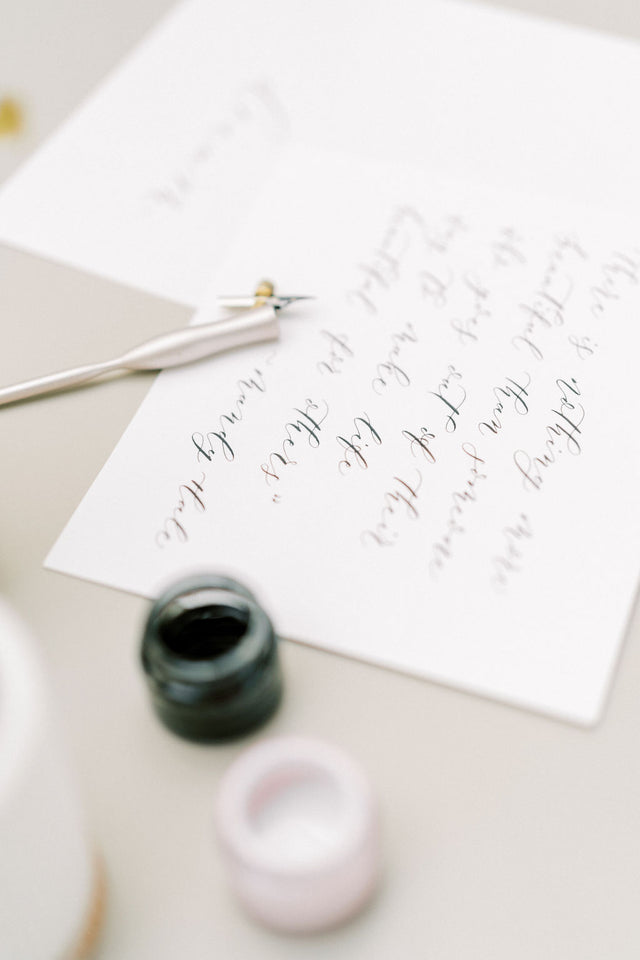 There is nothing more
beautiful than someone
who goes out of their
way to make life
beautiful for others"
~ mandy Hale